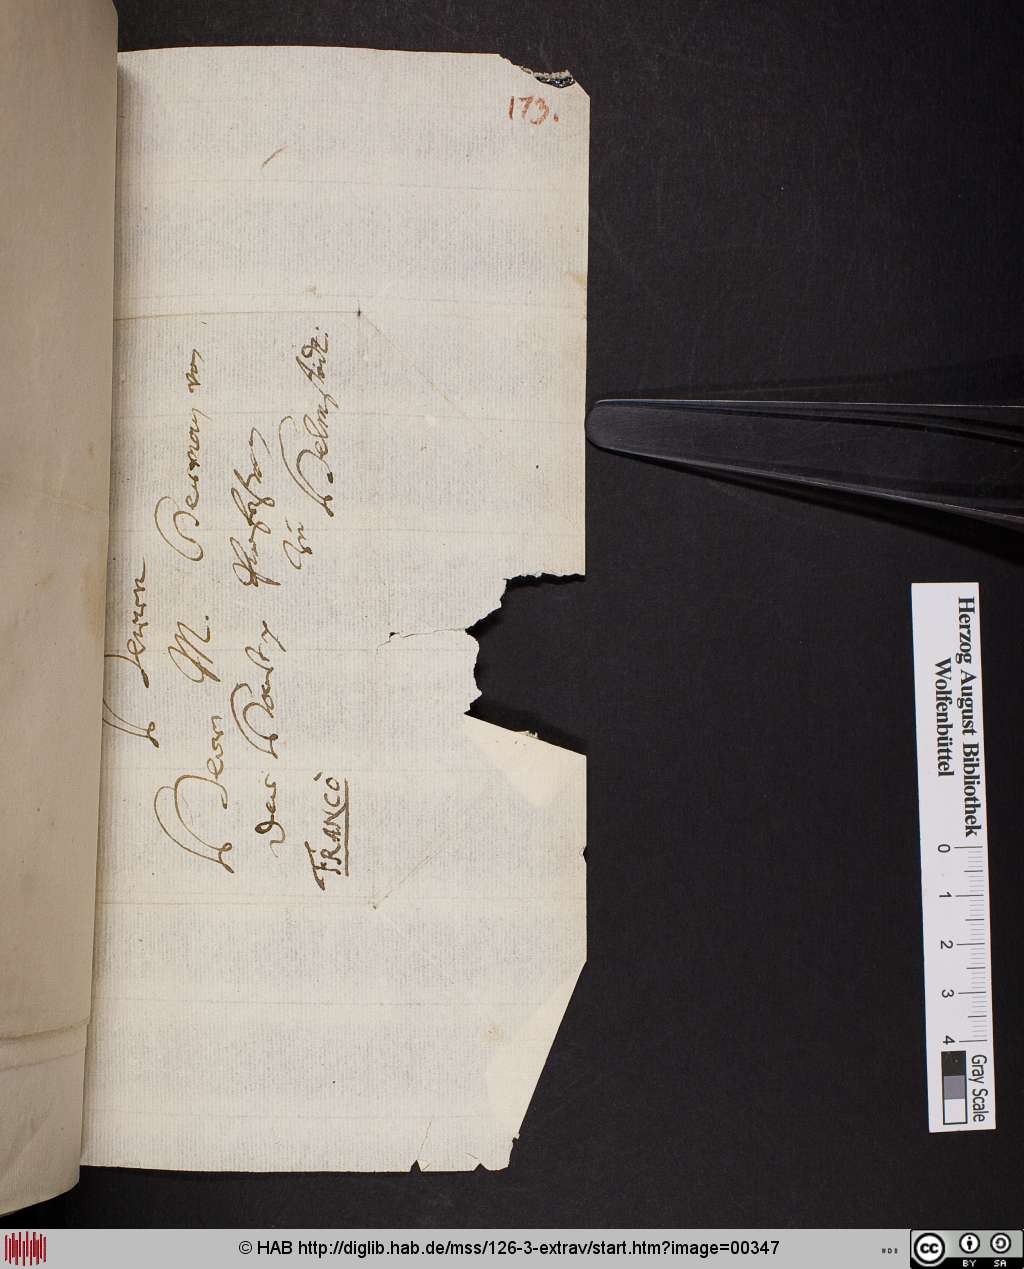 173.
Herrn
Herrn M. Herman von
der Hardt Professor
zu Helmstädt.
FRANCO
Herzog August Bibliothek
Wolfenbüttel
0 1 2 3 4
Gray Scale
© HAB http://diglib.hab.de/mss/126-3-extrav/start.htm?image=00347
cc BY SA